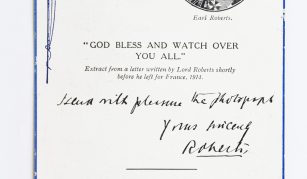 Earl Roberts.
"GOD BLESS AND WATCH OVER
YOU ALL."
Extract from a letter written by Lord Roberts shortly
before he left for France, 1914.
I send with pleasure the photograph
Yours sincerely
Roberts